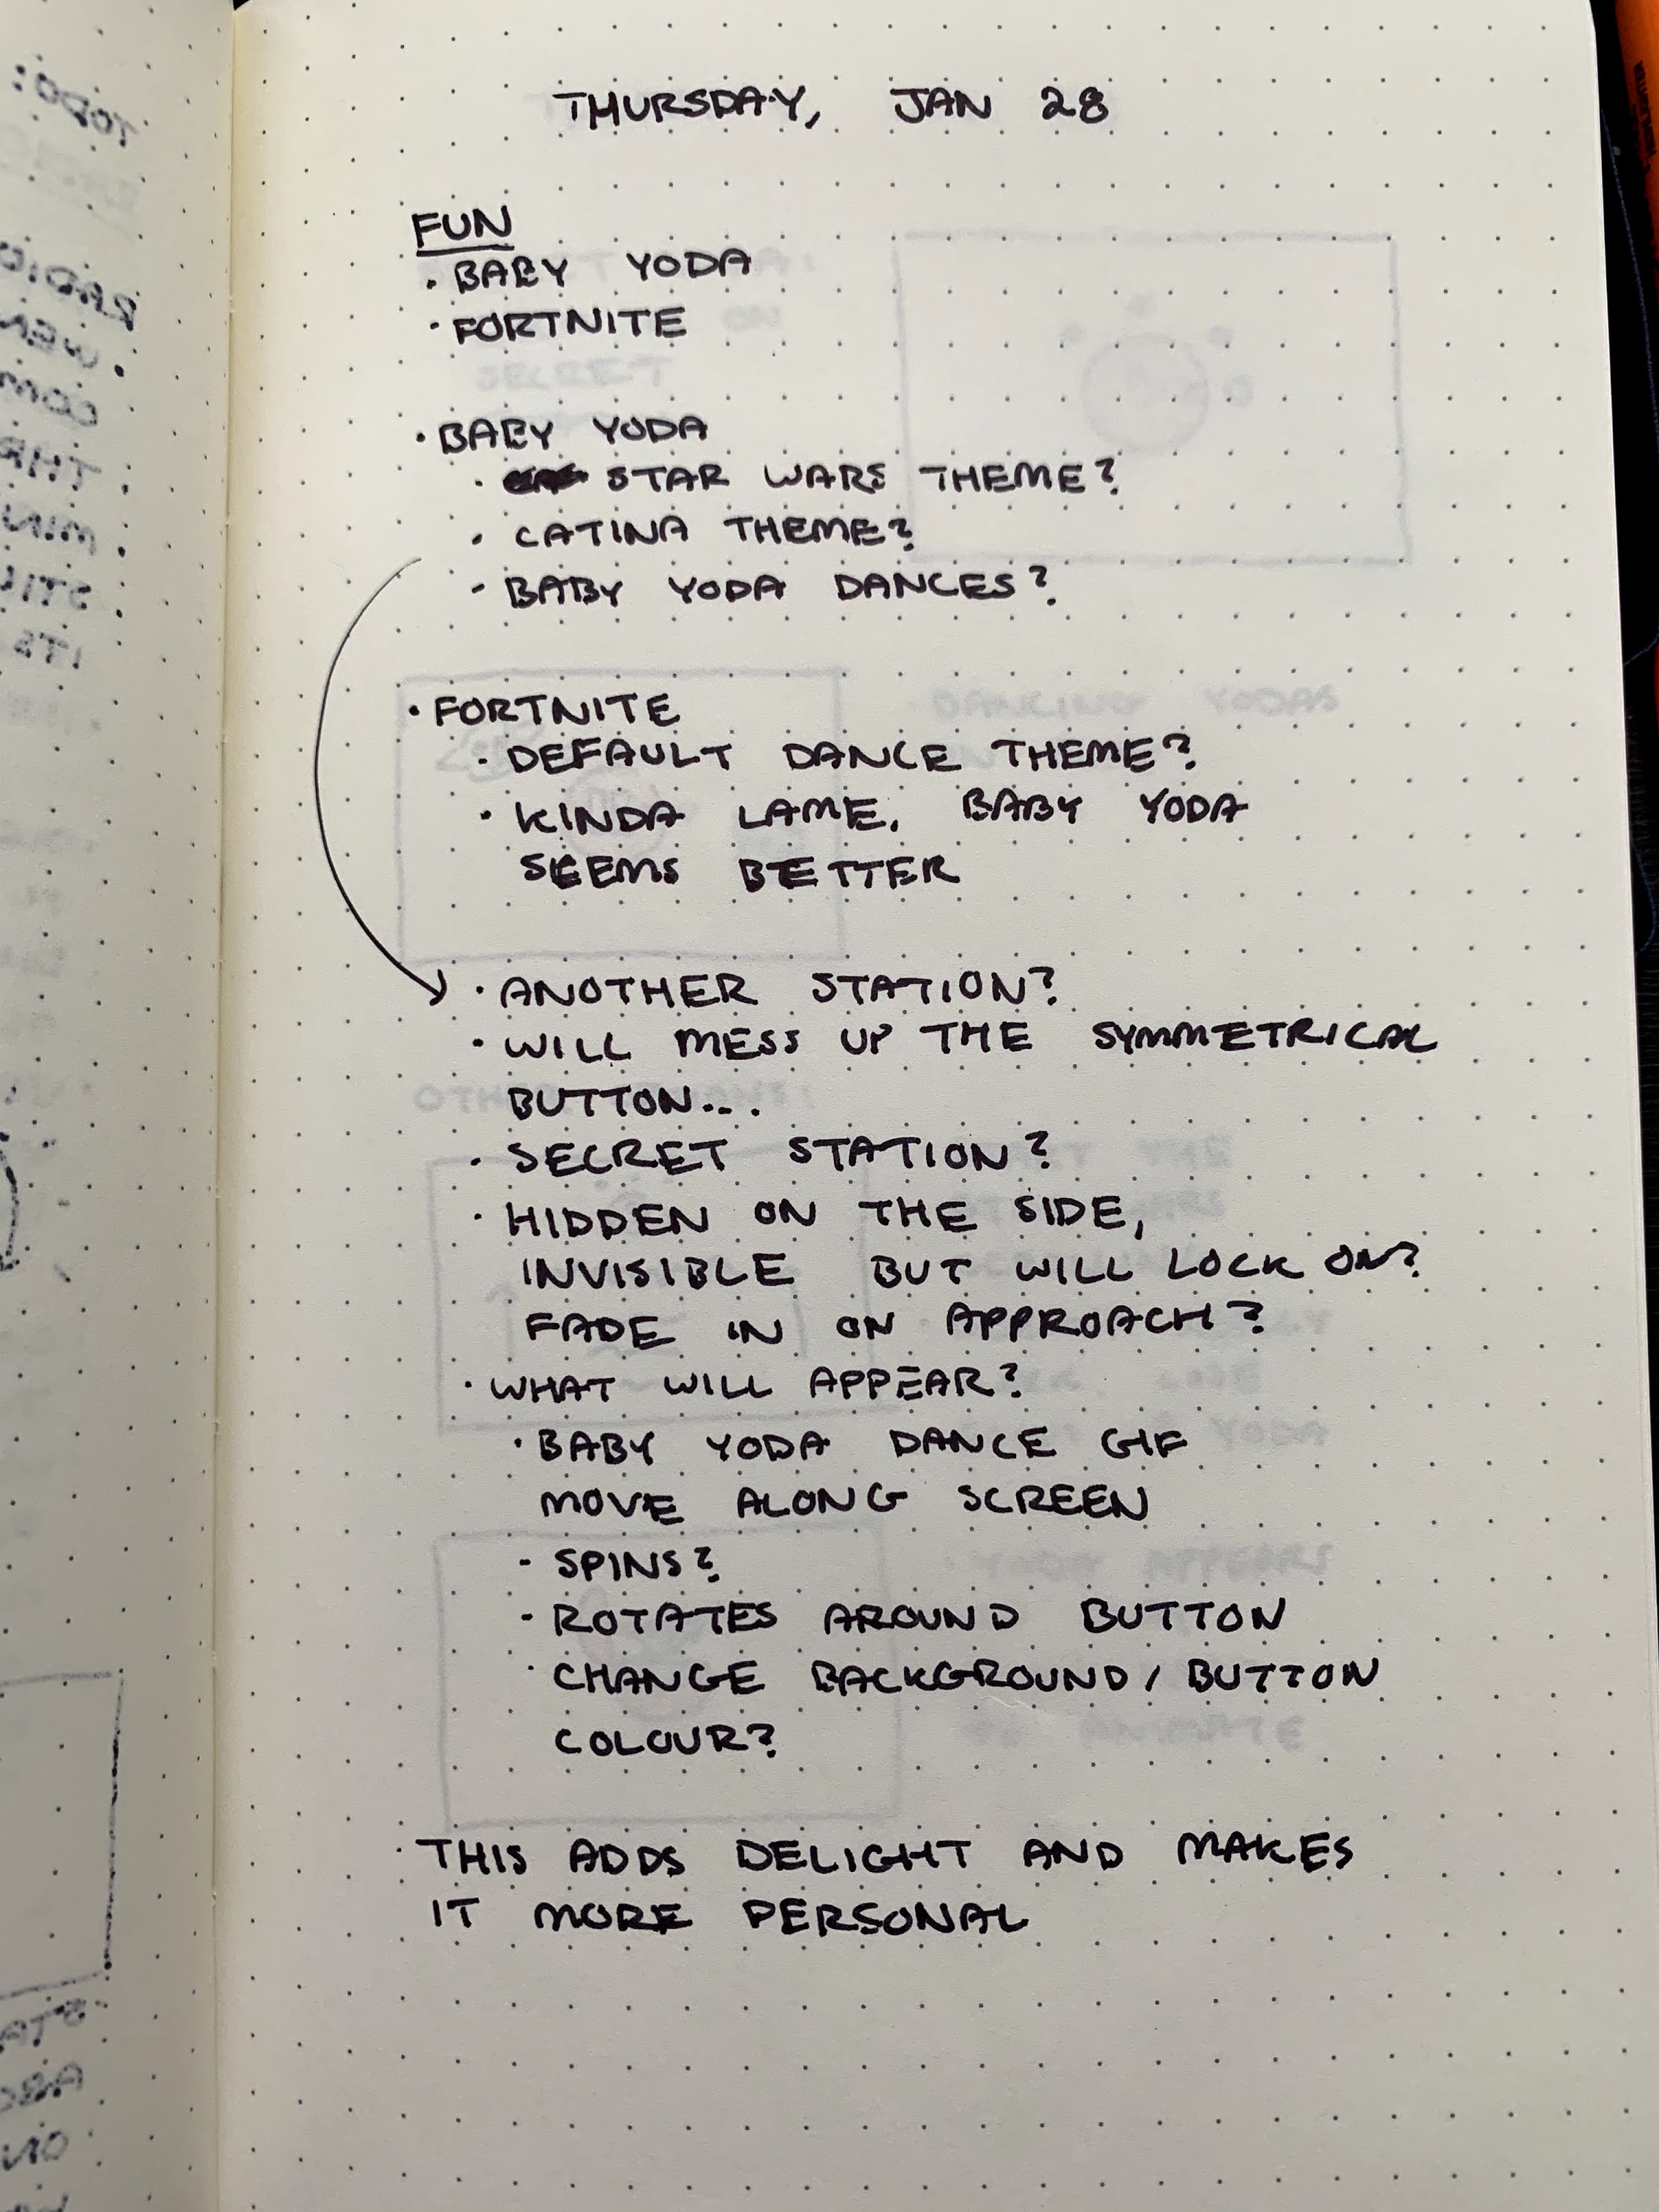 THURSDAY, JAN 28
FUN
· BABY YODA
· FORTNITE
· BABY YODA
· STAR WARS THEME?
· CATINA THEME?
- BABY YODA DANCES?
· FORTNITE
· DEFAULT DANCE THEME?
· KINDA LAME. BABY YODA
SEEMS BETTER
· ANOTHER STATION?
· WILL MESS UP THE SYMMETRICAL
BUTTON...
· SECRET STATION?
· HIDDEN ON THE SIDE,
INVISIBLE BUT WILL LOCK ON?
FADE IN ON APPROACH?
· WHAT WILL APPEAR?
· BABY YODA DANCE GIF
MOVE ALONG SCREEN
- SPINS?
- ROTATES AROUND BUTTON
· CHANGE BACKGROUND / BUTTON
COLOUR?
· THIS ADDS DELIGHT AND MAKES
IT MORE PERSONAL
TODO: